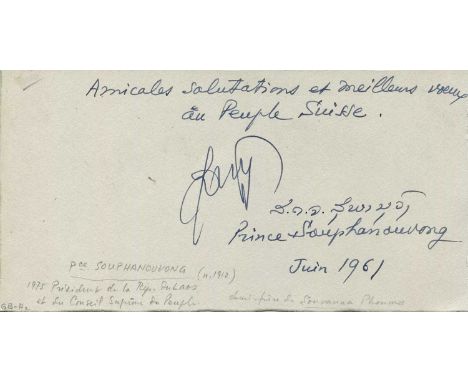 Amicales salutations et meilleurs voeux
au Peuple Suisse.
Prince Souphanouvong
Juin 1961
Pce SOUPHANOUVONG (n. 1912)
1975 Président de la Rép. du Laos
et du Conseil Suprême du Peuple
demi-frère de Souvanna Phouma
GB-Hz